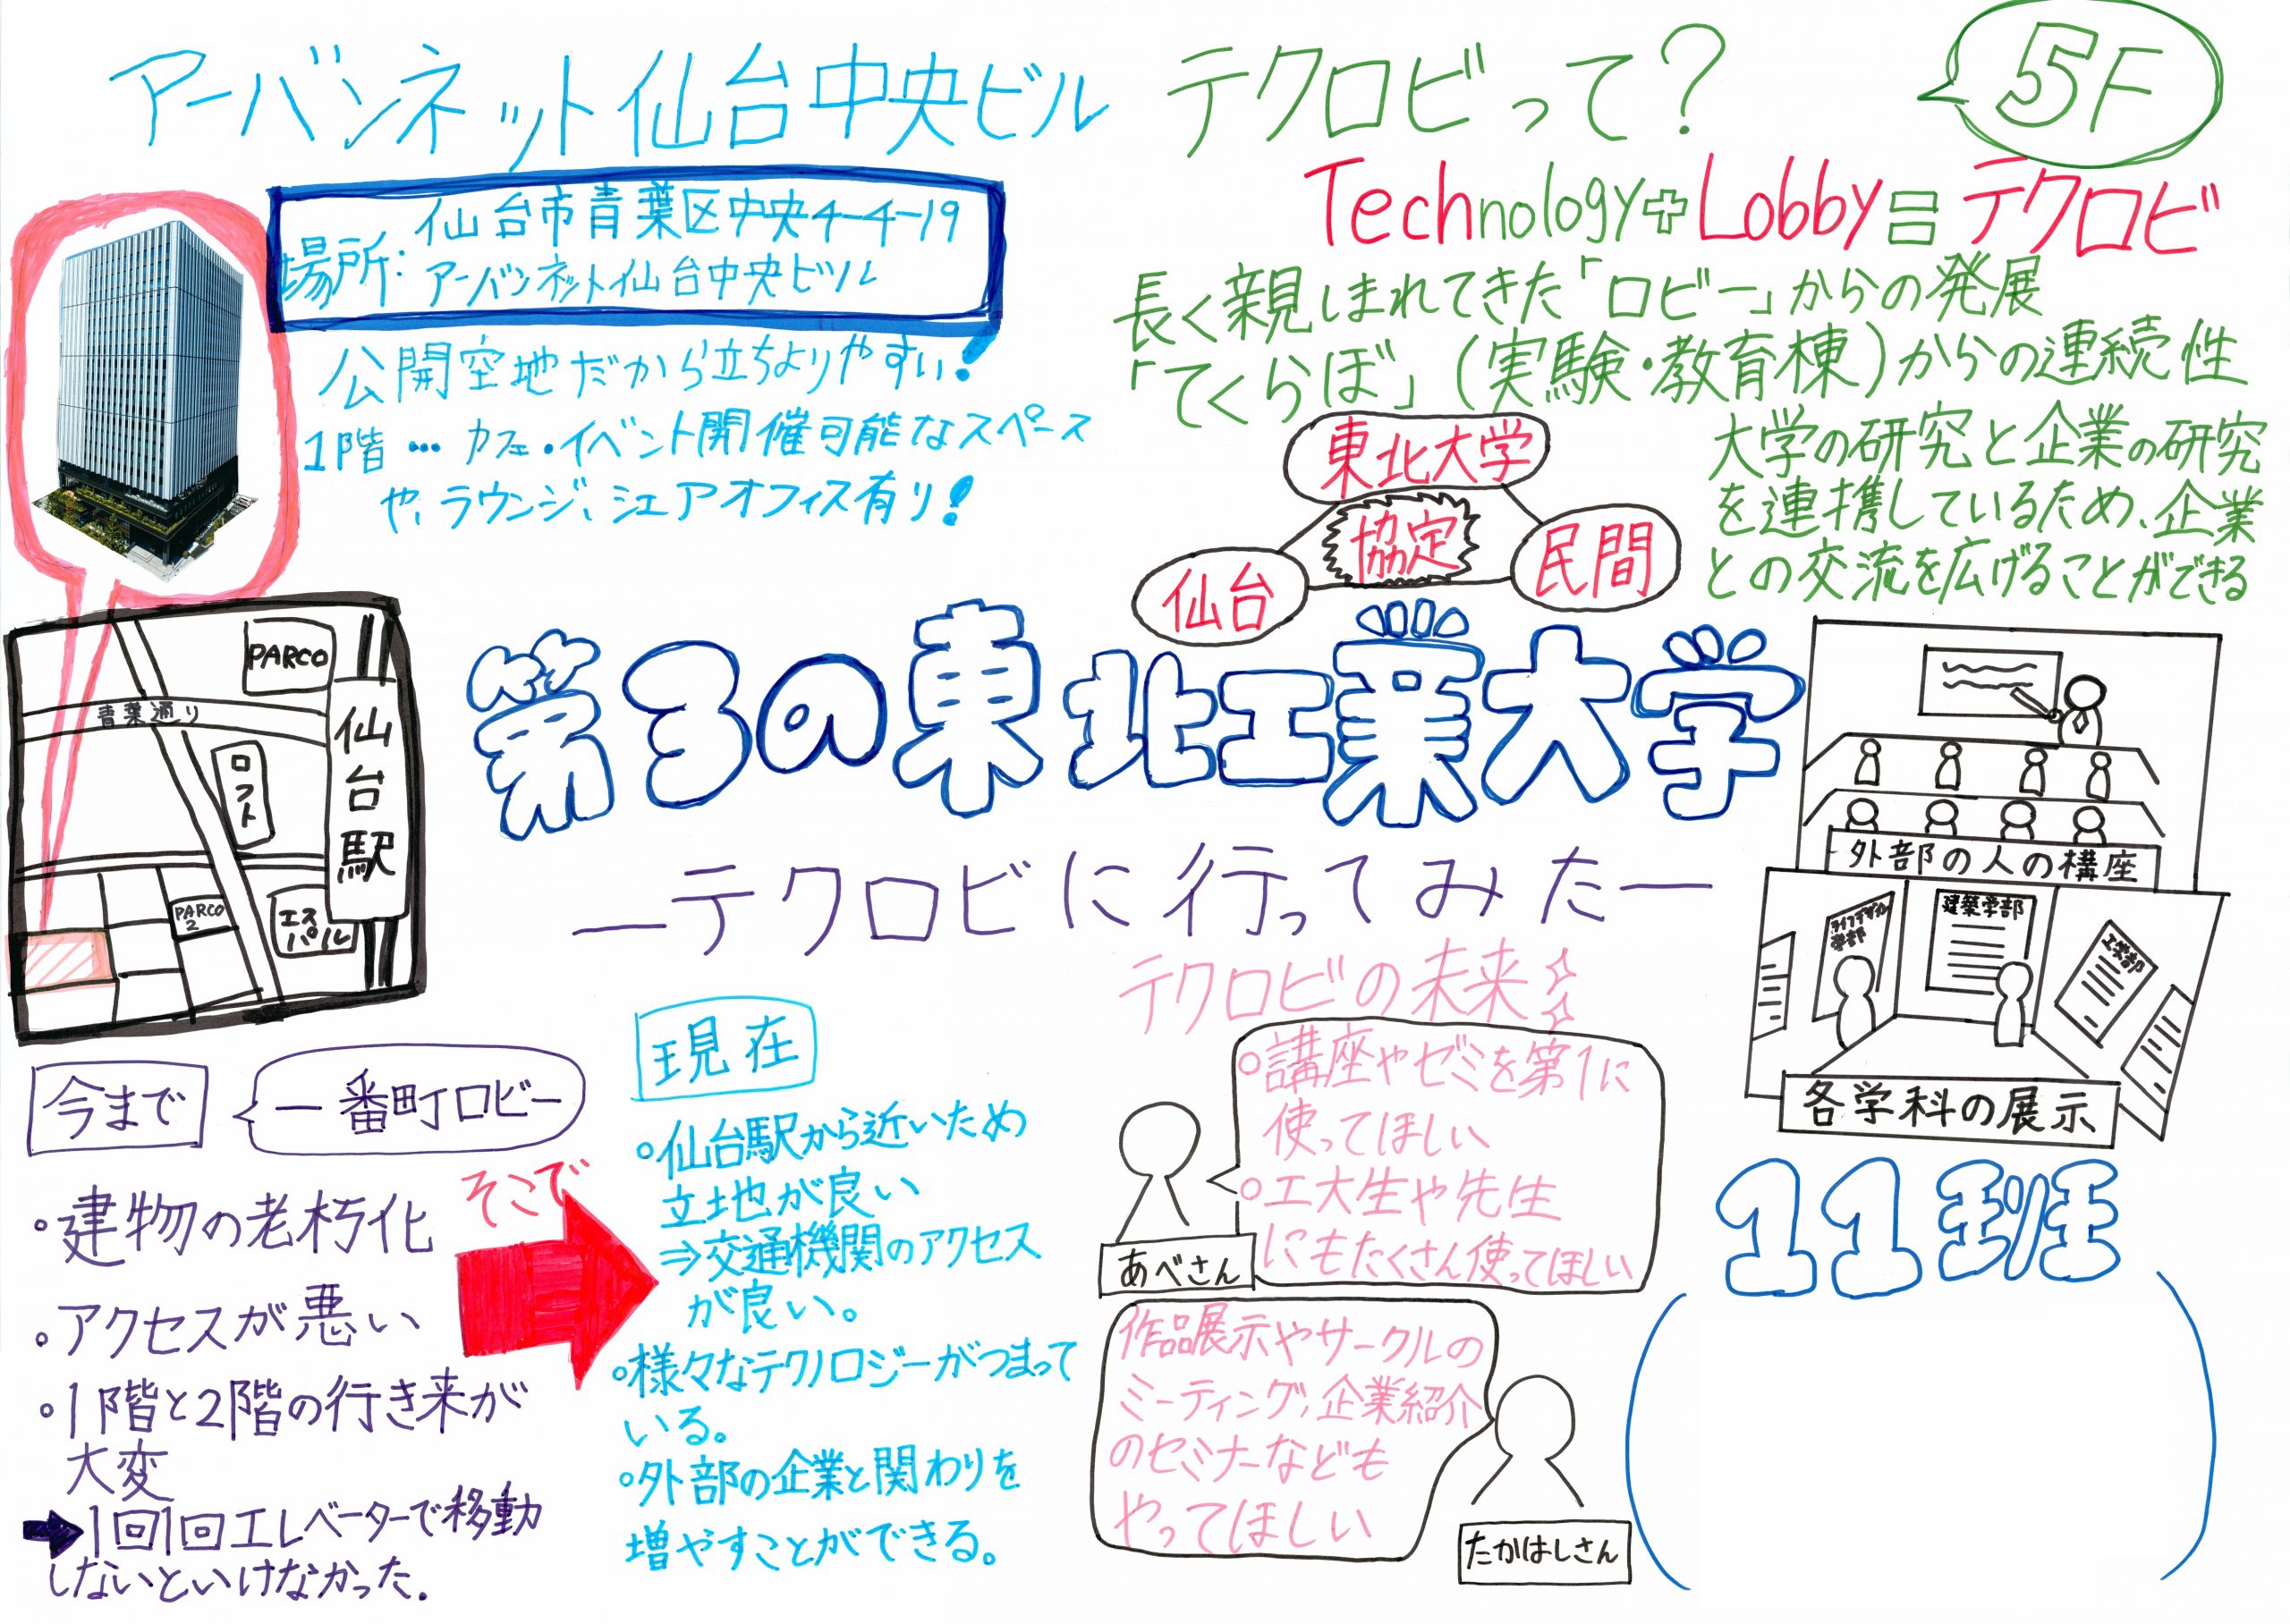 アーバンネット仙台中央ビル
場所:仙台市青葉区中央4-4-19
アーバンネット仙台中央ビル
公開空地だから立ちよりやすい!
1階…カフェ・イベント開催可能なスペース
や、ラウンジ、シェアオフィス有り!
テクロビって?
5F
Technology+Lobby=テクロビ
長く親しまれてきた「ロビー」からの発展
「てくらぼ」(実験・教育棟)からの連続性
大学の研究と企業の研究
を連携しているため、企業
との交流を広げることができる
東北大学
協定
仙台
民間
PARCO
青葉通り
ロフト
仙台駅
PARCO
2
エス
パル
第3の東北工業大学
―テクロビに行ってみた―
外部の人の講座
ライフデザイン
学部
建築学部
工学部
各学科の展示
今まで
一番町ロビー
・建物の老朽化
・アクセスが悪い
・1階と2階の行き来が
大変
➡1回1回エレベーターで移動
しないといけなかった.
そこで
現在
・仙台駅から近いため
立地が良い
⇒交通機関のアクセス
が良い。
・様々なテクノロジーがつまって
いる。
・外部の企業と関わりを
増やすことができる。
テクロビの未来
・講座やゼミを第1に
使ってほしい
・工大生や先生
にもたくさん使ってほしい
あべさん
作品展示やサークルの
ミーティング,企業紹介
のセミナーなども
やってほしい
たかはしさん
11班